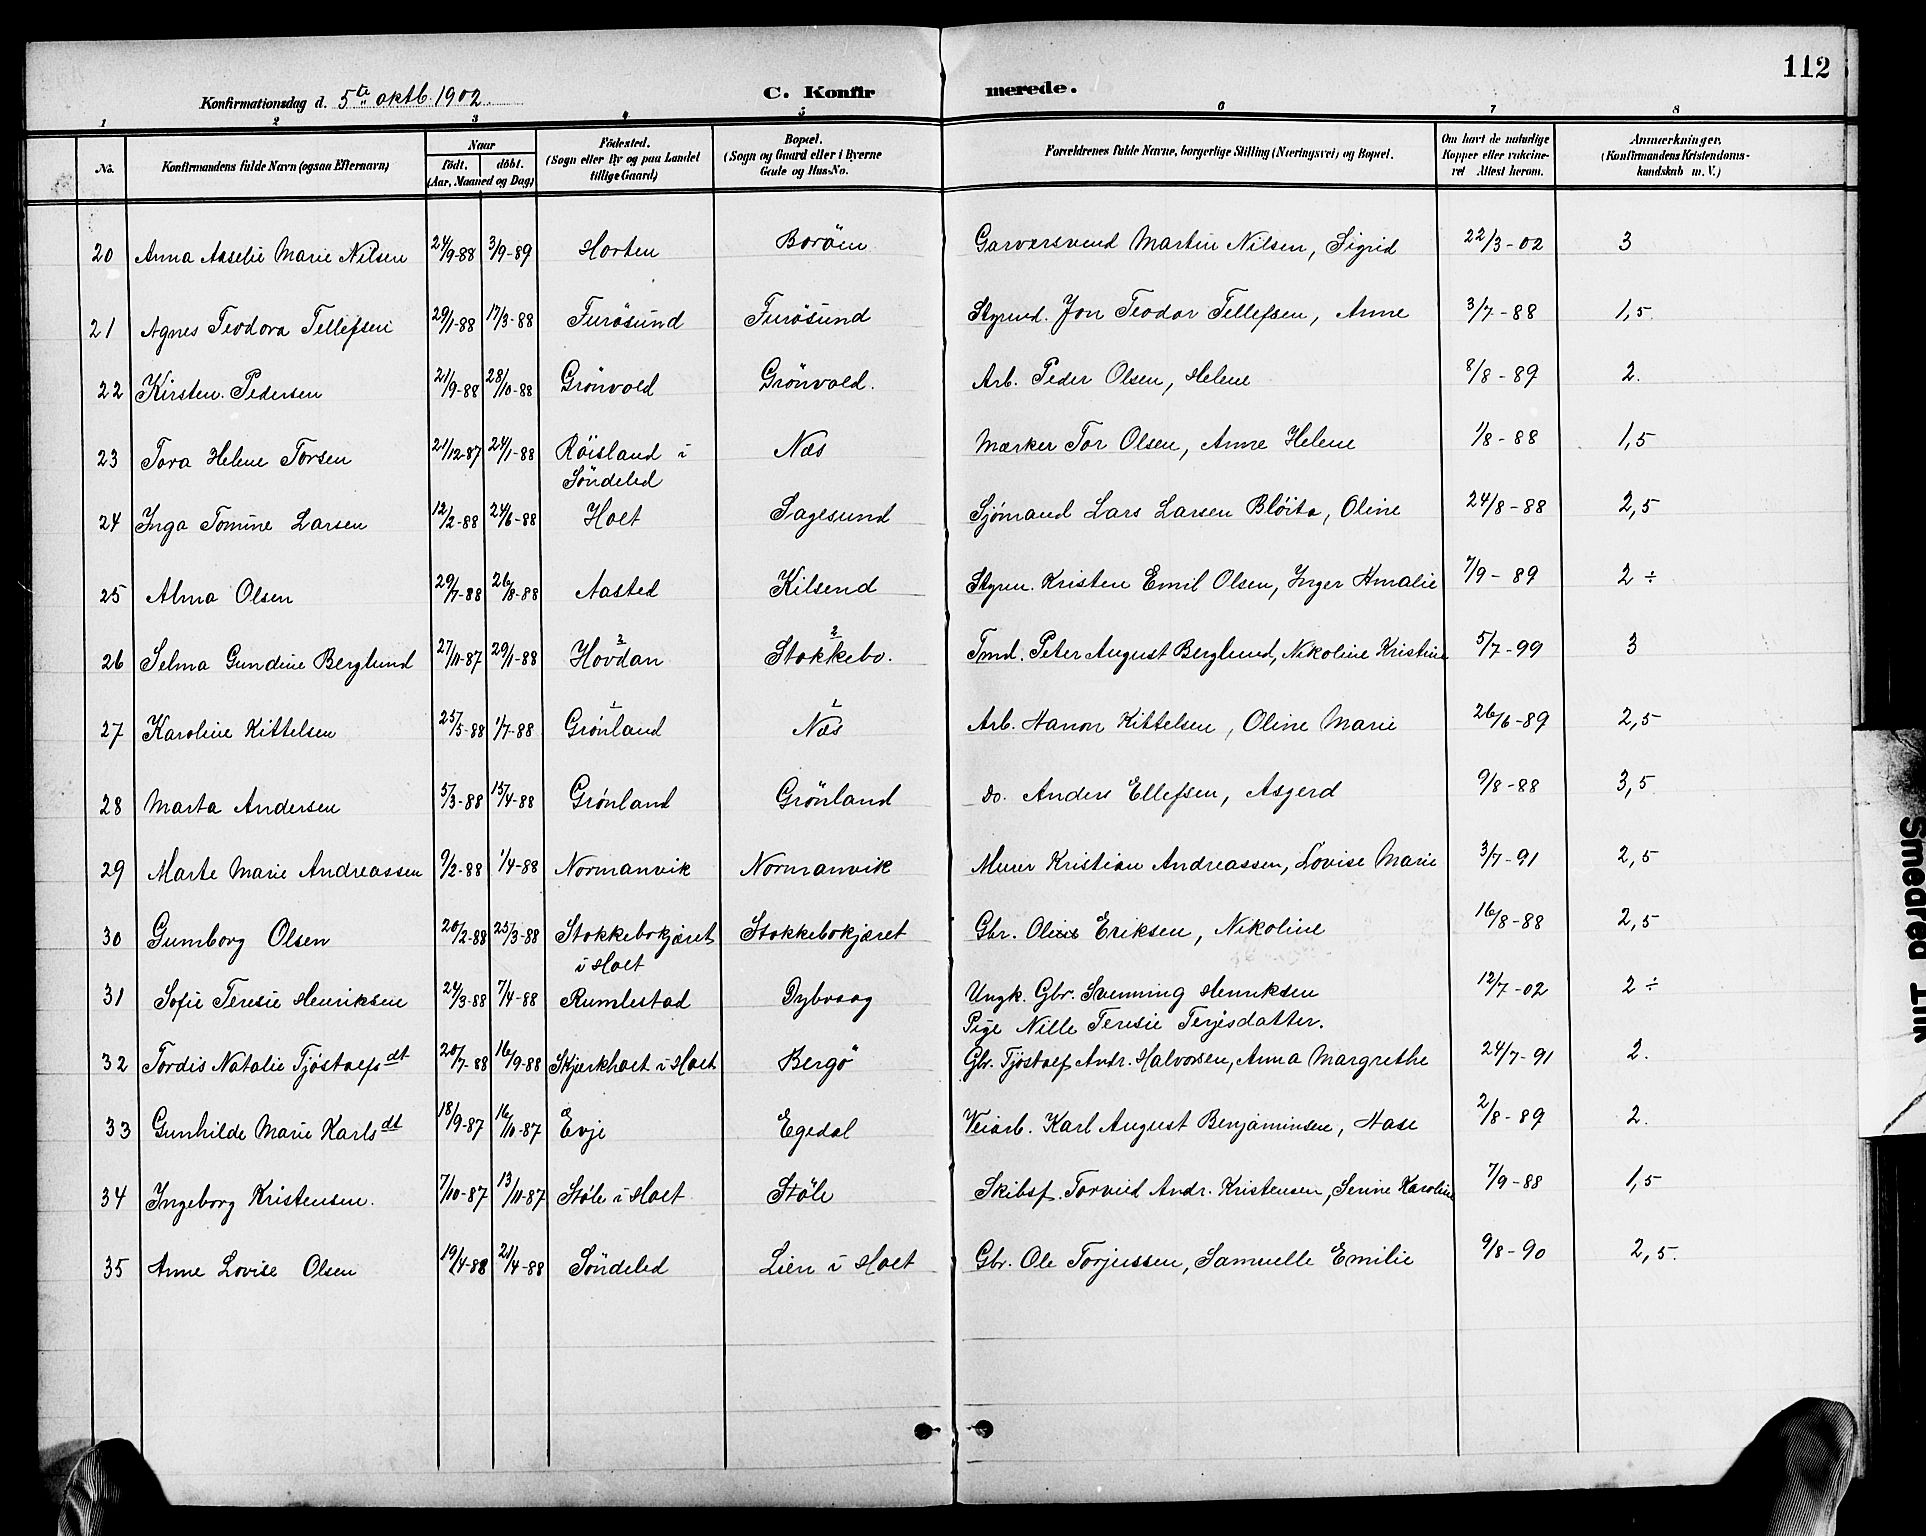 112
Konfirmationsdag d. 5te oktb. 1902. C. Konfirmerede.
1 2 3 4 5 6 7 8
No. Konfirmandens fulde Navn (ogsaa Efternavn) Naar födt. döbt. (Aar, Maaned og Dag) Födested. (Sogn eller By og paa Landet tillige Gaard) Bopæl. (Sogn og Gaard eller i Byerne Gade og Hus-No. Forældrenes fulde Navne, borgerlige Stilling (Næringsvei) og Bopæl. Om havt de naturlige Kopper eller vakcineret Attest herom. Anmærkninger, (Konfirmandens Kristendomskundskab m. V.)
20 Anna Aaselie Marie Nilsen 24/9-88 3/9-89 Horten Boröen Garversvend Martin Nilsen, Sigrid 22/3-02 3
21 Agnes Teodora Tellefsen 29/1-88 17/3-88 Furösund Furösund Styrmd. Jon Teodor Tellefsen, Anne 3/7-88 1,5
22 Kirsten Pedersen 21/9-88 28/10-88 Grönvold Grönvold. Arb. Peder Olsen, Helene 8/8-89 2.
23 Tora Helene Torsen 21/12-87 24/1-88 Röisland i Söndeled Næs Mærker Tor Olsen, Anne Helene 1/8-88 1,5
24 Inga Tomine Larsen 12/2-88 24/6-88 Holt Sagesund Sjömand Lars Larsen Blöita, Oline 24/8-88 2,5
25 Alma Olsen 29/7-88 26/8-88 Aasted Kilsend Styrm. Kristen Emil Olsen, Inger Amalie 7/9-89 2 ÷
26 Selma Gundine Berglund 27/11-87 29/1-88 Hovdan 2 Stokkebo. 2 Tmd. Peter August Berglund, Nikoline Kristine 5/7-99 3
27 Karoline Kittelsen 25/5-88 1/7-88 Grönland Næs Arb. Hanon Kittelsen, Oline Marie 26/6-89 2,5
28 Marta Andersen 5/3-88 15/4-88 Grönland Grönland do. Anders Ellefsen, Asgerd 9/8-88 3,5
29 Marte Marie Andreassen 9/2-88 1/4-88 Normanvik Normanvik Murer Kristian Andreassen, Lovise Marie 3/7-91 2,5
30 Gumborg Olsen 20/2-88 25/3-88 Stokkebokjæret i Holt Stokkebokjæret Gbr. Ole Eriksen, Nikoline 16/8-88 2,5
31 Sofie Teresie Henriksen 24/3-88 7/4-88 Rumlestad Dybvaag Ungk. Gbr. Svenning Henriksen 12/7-02 2 ÷
Pige Nille Teresie Terjisdatter.
32 Tordis Natalie Tjöstolfsdt 20/7-88 16/9-88 Skjærkholt i Holt Bergö Gbr. Tjöstolf Andr. Halvorsen, Anna Margrethe 24/7-91 2.
33 Gunhilde Marie Karlsdt 18/9-87 16/10-87 Evje Egedal Veiarb. Karl August Benjaminsen, Aase 2/8-89 2.
34 Ingeborg Kristensen. 7/10-87 13/11-87 Støle i Holt Støle Skibsf. Torvild Andr. Kristensen, Serine Karoline 7/9-88 1,5
35 Anne Lovise Olsen 19/4-88 21/4-88 Söndeled Lien i Holt Gbr. Ole Torjussen, Samuelle Emilie 9/8-90 2,5.
Smeared Ink